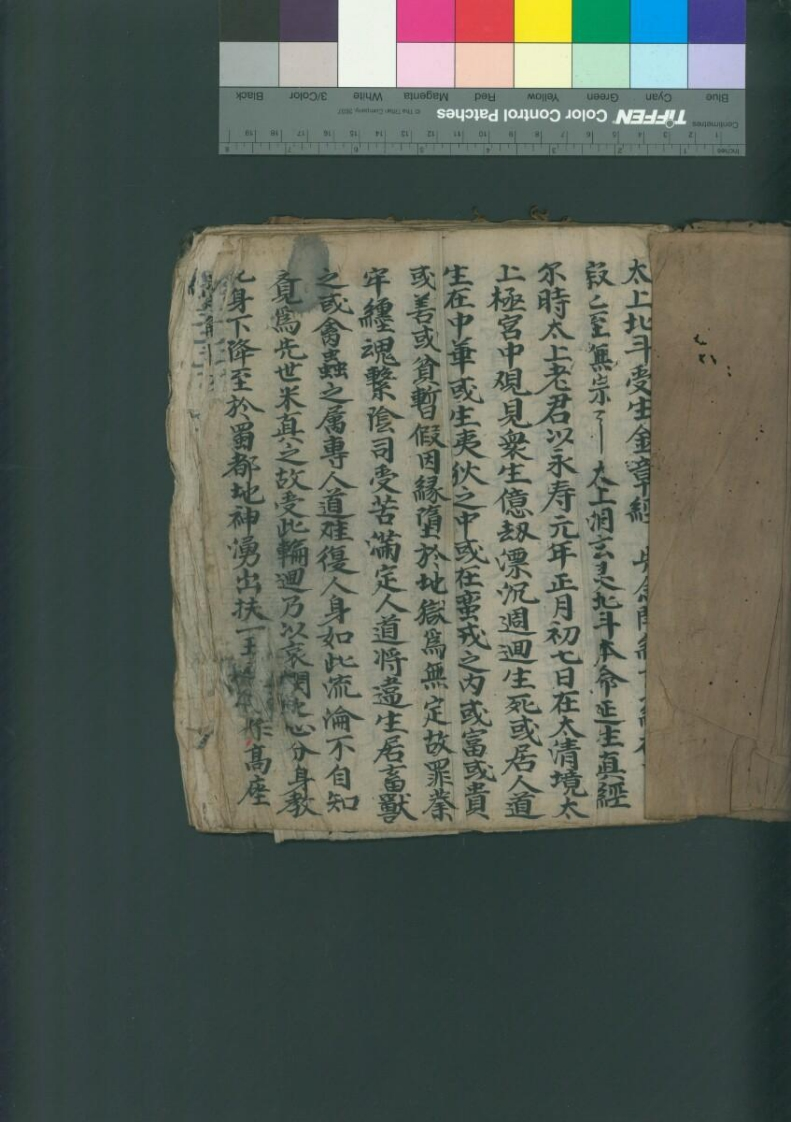 太上北斗受生金章經
設乙至無宗了 太上洞玄灵北斗本命延生真經
尔時太上老君以永寿元年正月初七日在太清境太
上極宮中覌見衆生億刼漂沉週迴生死或居人道
生在中華或生夷狄之中或在蛮戎之内或富或貴
或善或貧暫假因緣墮於地獄為無定故罪拳
牢纏魂繫陰司受苦滿定人道将違生居畜獸
之或禽蟲之属專人道难復人身如此流淪不自知
覺為先世米真之故受此輪迴乃以哀憫心分身教
化身下降至於蜀都地神湧出扶一玉作高座
TIFFEN Color Control Patches
© The Tiffen Company, 2007
Centimetres
Inches
Blue
Cyan
Green
Yellow
Red
Magenta
White
3/Color
Black
1 2 3 4 5 6 7 8 9 10 11 12 13 14 15 16 17 18 19
1 2 3 4 5 6 7 8